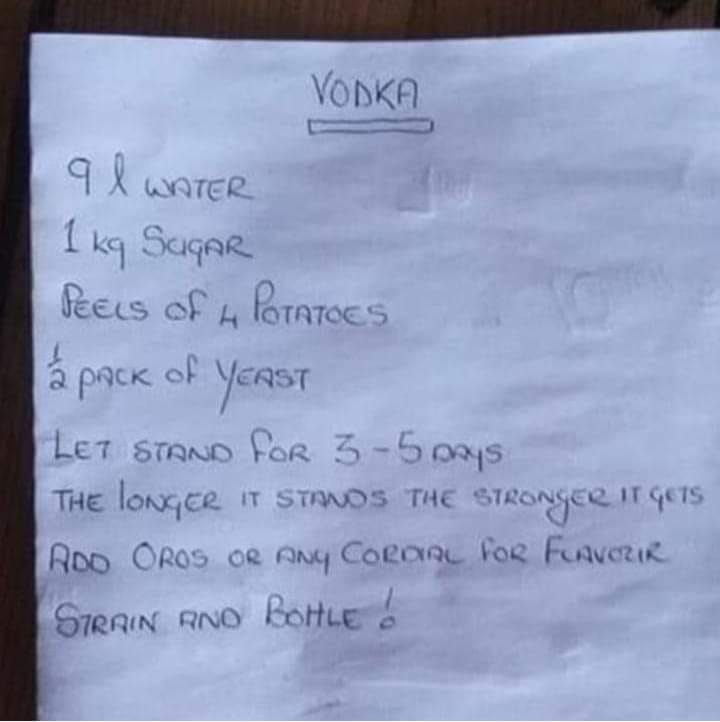 VODKA
9 l WATER
1 kg SUGAR
PEELS OF 4 POTATOES
1/2 PACK OF YEAST
LET STAND FOR 3-5 DAYS
THE LONGER IT STANDS THE STRONGER IT GETS
ADD OROS OR ANY CORDIAL FOR FLAVOZIR
STRAIN AND BOTTLE!